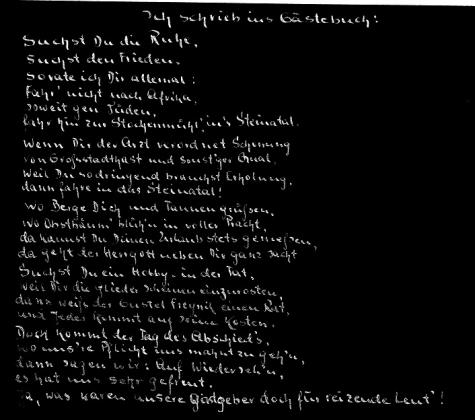 Ich schrieb ins Gästebuch:
Suchst Du die Ruhe,
suchst den Frieden,
so rate ich Dir allemal:
Fahr' nicht nach Afrika,
soweit gen Süden,
fahr hin zur Stockenmühl', in's Steinatal.
Wenn Dir der Arzt verordnet Schonung
von Großstadthast und sonst'ger Qual,
weil Du so dringend brauchst Erholung,
dann fahre in das Steinatal!
Wo Berge Dich und Tannen grüßen,
wo Obstbäum' blüh'n in voller Pracht,
da kannst Du Deinen Urlaub stets genießen,
da geht der Herrgott neben Dir ganz sacht
Suchst Du ein Hobby - in der Tat,
weil Dir die Glieder scheinen einzurosten,
dann weiß der Gustel Freynik einen Rat,
und Jeder kommt auf seine Kosten.
Doch kommt der Tag des Abschied's,
wo uns're Pflicht uns mahnt zu geh'n,
dann sagen wir: Auf Wiederseh'n,
es hat uns sehr gefreut.
Ja, was waren unsere Gastgeber doch für reizende Leut'!